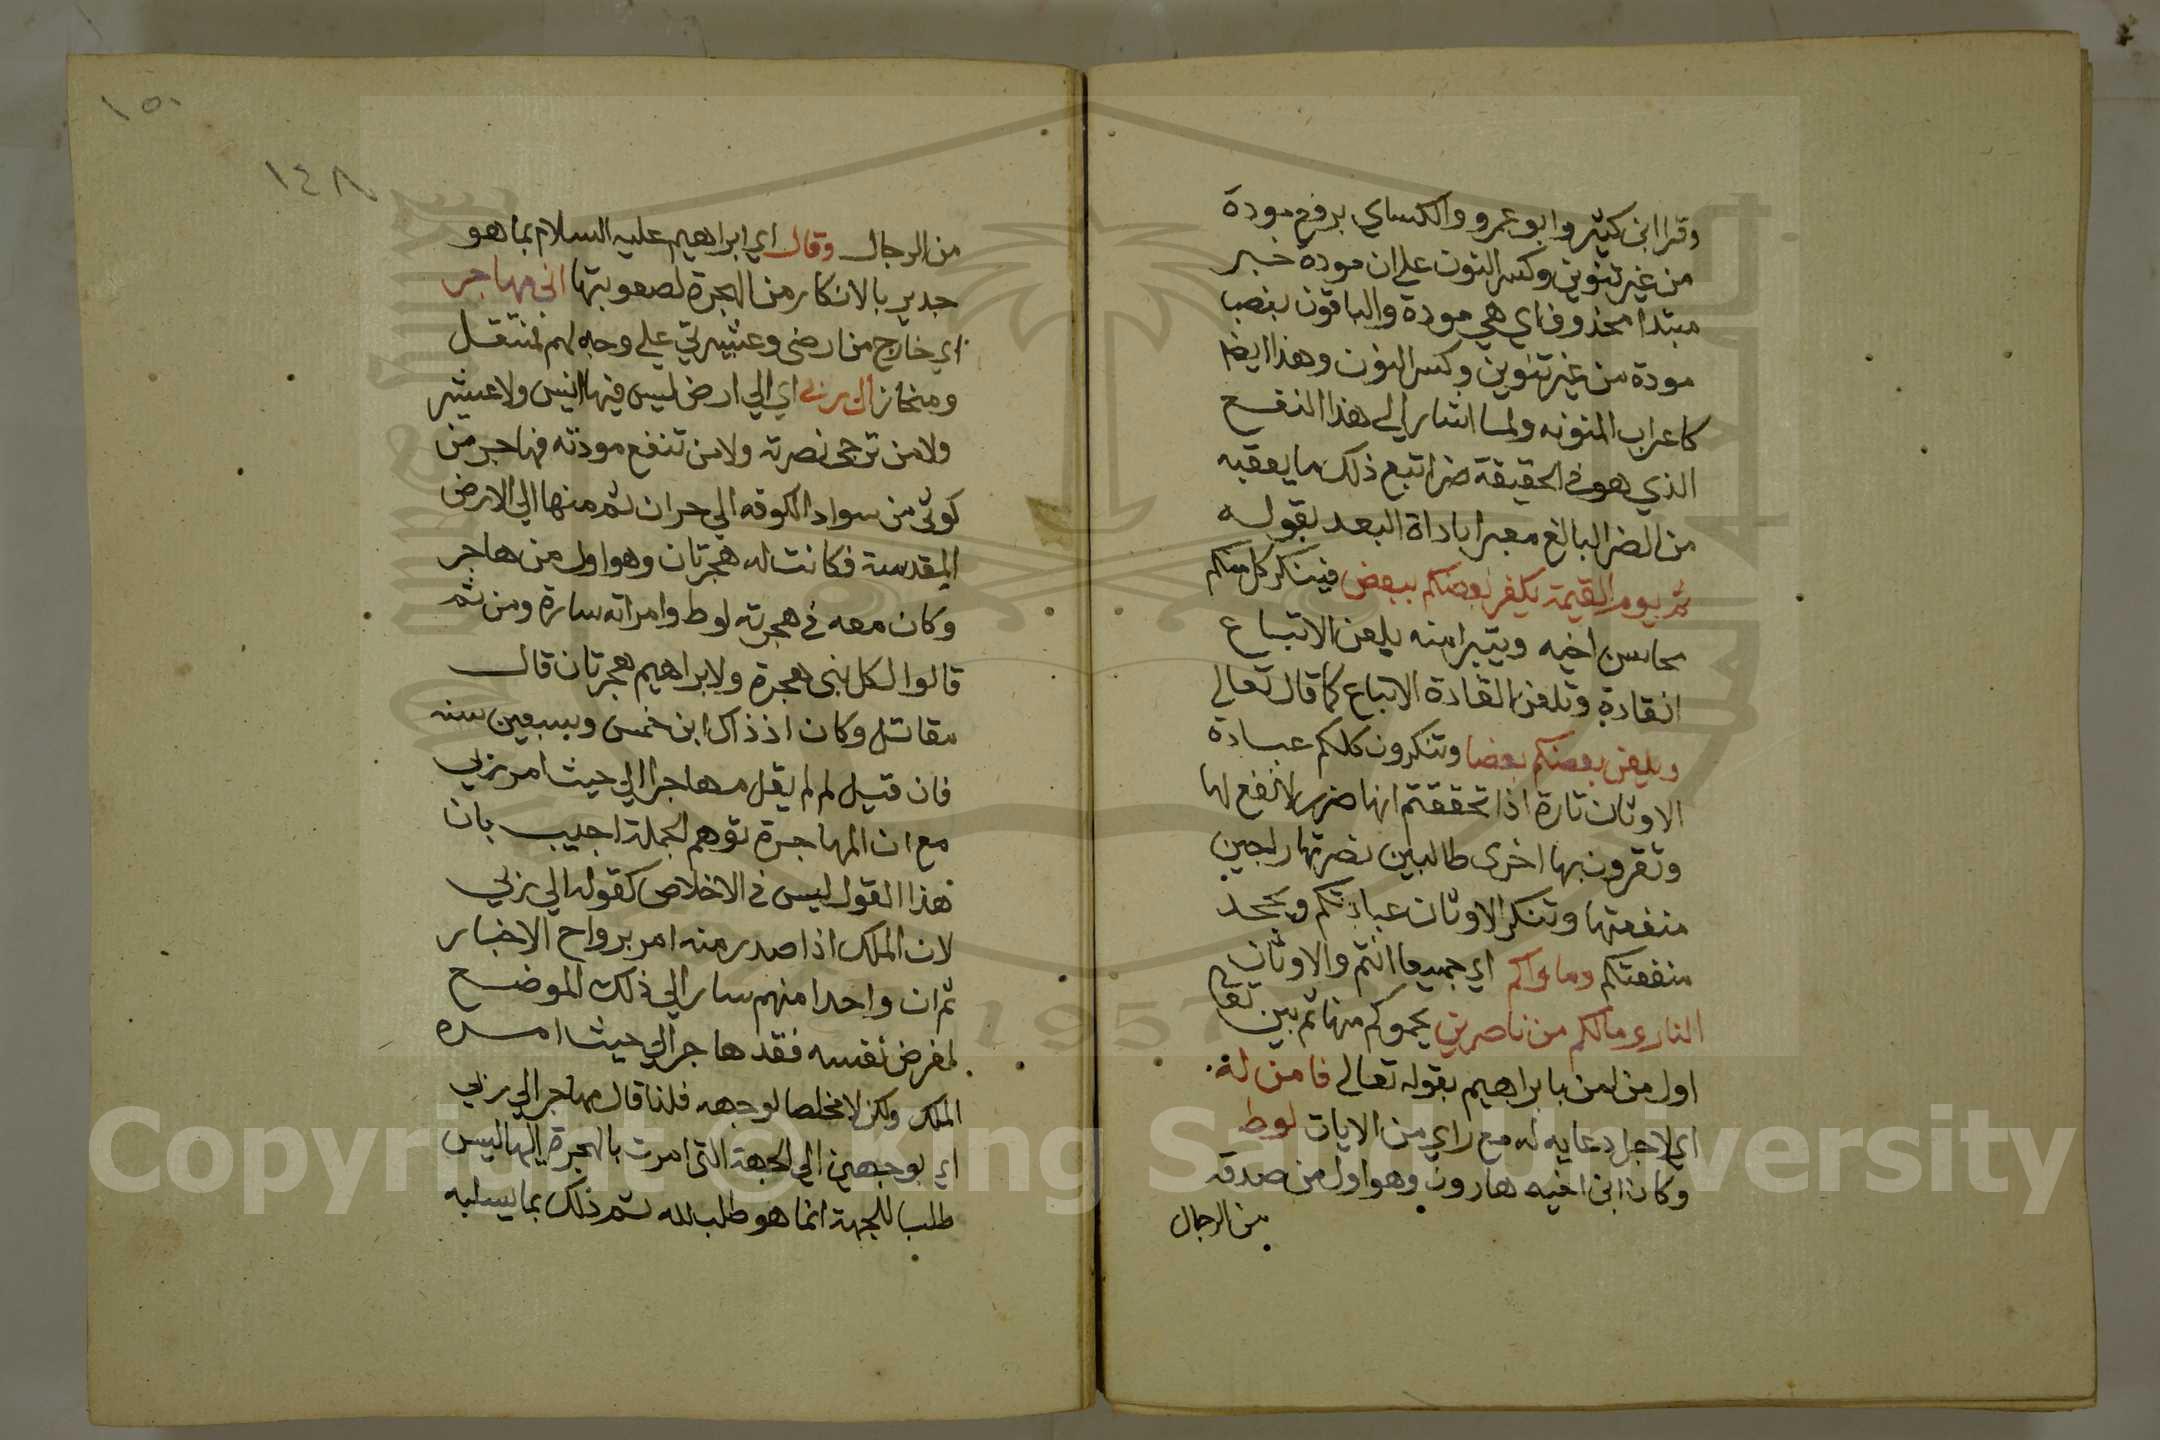 وقرا ابن كثير وابو عمرو والكساي برفع مودة
من غير تنوين وكسر النون علي ان مودة خبر
مبتدا محذوف اي هي مودة والباقون بنصب
مودة من غير تنوين وكسر النون وهذا ايضا
كاعراب المنونه ولما اشار الي هذا النفع
الذي هو في الحقيقة ضر اتبع ذلك ما يعقبه
من الضر البالغ معبرا باداة البعد بقوله
ثم يوم القيمة يكفر بعضكم ببعض فينكر كل منكم
محاسن اخيه ويتبرا منه يلعن الاتباع
القادة وتلعن القادة الاتباع كما قال تعالي
ويلعن بعضكم بعضا وتنكرون كلكم عبادة
الاوثان تارة اذا تحققتم انها ضرر لا نفع لها
وتقرون بها اخرى طالبين نصرتها راجين
منفعتها وتنكر الاوثان عبادتكم وتجحد
منفعتكم وماواكم اي جميعا انتم والاوثان
النار وما لكم من ناصرين يحموكم منها ثم بين تعالي
اول من امن بابراهيم بقوله تعالي فامن له
اي لاجل دعايه له مع راي من الايات لوط
وكان ابن اخيه هارون وهو اول من صدقه
من الرجال
١٥٠
١٤٨
من الرجال وقال اي ابراهيم عليه السلام بما هو
جدير بالانكار من الهجرة لصعوبتها اني مهاجر
اي خارج من ارضى وعشيرتي علي وجه لهم فمنتقل
ومنحاز الى ربي اي الي ارض ليس فيها انيس ولا عشير
ولا من ترجى نصرته ولا من تنفع مودته فهاجر من
كوثى من سواد الكوفه الي حران ثم منها الي الارض
المقدسة فكانت له هجرتان وهو اول من هاجر
وكان معه في هجرته لوط وامراته سارة ومن ثم
قالوا لكل نبى هجرة ولابراهيم هجرتان قال
مقاتل وكان اذ ذاك ابن خمس وسبعين سنه
فان قيل لم لم يقل مهاجر الي حيث امر ربي
مع ان المهاجرة توهم الجملة اجيب بان
هذا القول ليس في الاخلاص كقوله الي ربي
لان الملك اذا صدر منه امر برواح الاخبار
ثم ان واحدا منهم سار الي ذلك الموضع
لغرض نفسه فقد هاجر الي حيث امره
الملك ولكن لا مخلصا لوجهه فلنا قال مهاجر الي ربي
اي بوجهين الي الجهة التى امرت بالهجرة اليها ليس
طلب للجهة انما هو طلب لله ثم ذلك بما يسليه
Copyright © King Saud University
1957